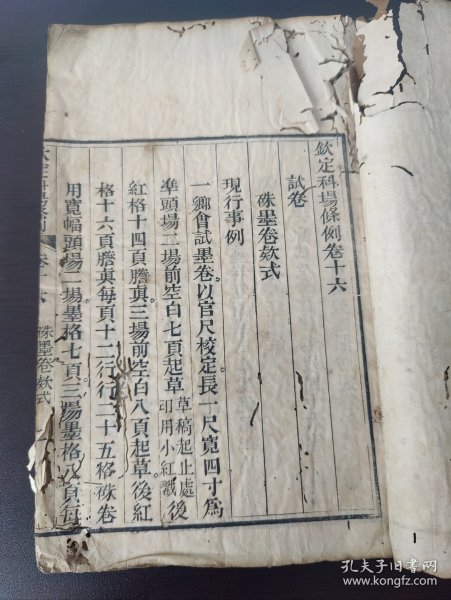 欽定科場條例卷十六
試卷
硃墨卷欵式
現行事例
一鄉會試墨卷以官尺校定長一尺寬四寸爲
準頭場二場前空白七頁起草草稿起止處印用小紅戳後
紅格十四頁謄眞三場前空白八頁起草後紅
格十六頁謄眞每頁十二行行二十五格硃卷
用寬幅頭場二場墨格七頁三場墨格八頁每
欽定科場條例
硃墨卷欵式
孔夫子旧书网
www.kongfz.com